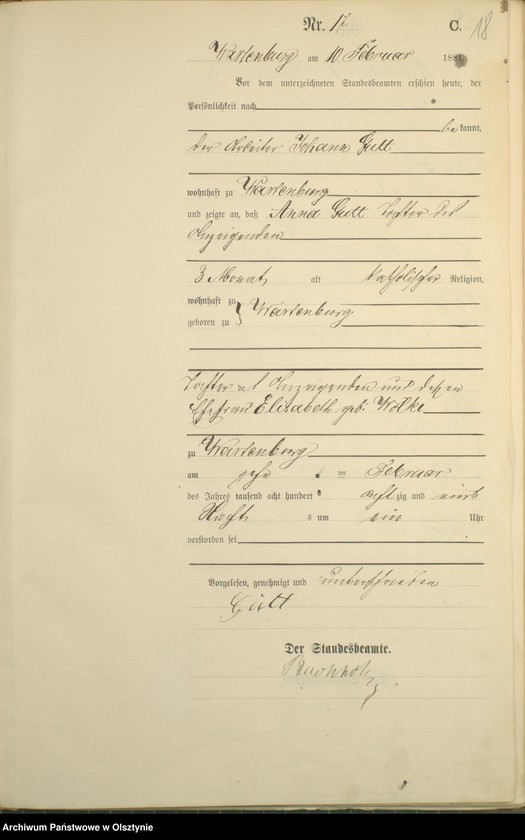 Nr. 17 C. 18
Wartenburg am 10 Februar 188
Vor dem unterzeichneten Standesbeamten erschien heute, der
Persönlichkeit nach
bekannt,
der Arbeiter Johann Gutt
wohnhaft zu Wartenburg
und zeigte an, daß Anna Gutt Tochter des
Anzeigenden
3 Monat alt katholischer Religion,
wohnhaft zu
geboren zu } Wartenburg
Tochter des Anzeigenden und dessen
Ehefrau Elisabeth geb. Wolke
zu Wartenburg
am zehn Februar
des Jahres tausend acht hundert achtzig und eins
Nachts um ein Uhr
verstorben sei
Vorgelesen, genehmigt und unterschrieben
Gutt
Der Standesbeamte.
Buchholz
Archiwum Państwowe w Olsztynie